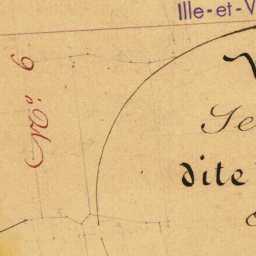 Ille-et-V
N.º 9
Se
dite